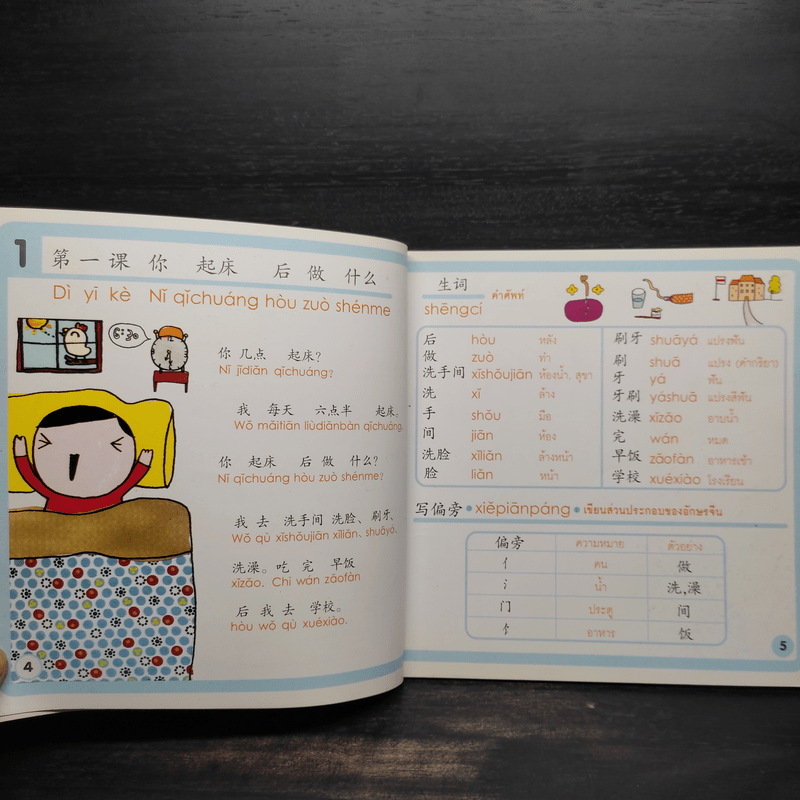 1
第一课 你 起床 后 做 什么
Dì yī kè Nǐ qǐchuáng hòu zuò shénme
6:30
你 几点 起床？
Nǐ jǐdiǎn qǐchuáng?
我 每天 六点半 起床。
Wǒ měitiān liùdiǎnbàn qǐchuáng.
你 起床 后 做 什么？
Nǐ qǐchuáng hòu zuò shénme?
我 去 洗手间 洗脸、刷牙、
Wǒ qù xǐshǒujiān xǐliǎn、shuāyá、
洗澡。吃 完 早饭
xǐzǎo. Chī wán zǎofàn
后 我 去 学校。
hòu wǒ qù xuéxiào.
4
生词 คำศัพท์
shēngcí
后 hòu หลัง
做 zuò ทำ
洗手间 xǐshǒujiān ห้องน้ำ, สุขา
洗 xǐ ล้าง
手 shǒu มือ
间 jiān ห้อง
洗脸 xǐliǎn ล้างหน้า
脸 liǎn หน้า
刷牙 shuāyá แปรงฟัน
刷 shuā แปรง (คำกริยา)
牙 yá ฟัน
牙刷 yáshuā แปรงสีฟัน
洗澡 xǐzǎo อาบน้ำ
完 wán หมด
早饭 zǎofàn อาหารเช้า
学校 xuéxiào โรงเรียน
写偏旁 • xiěpiānpáng • เขียนส่วนประกอบของอักษรจีน
偏旁 ความหมาย ตัวอย่าง
亻 คน 做
氵 น้ำ 洗,澡
门 ประตู 间
饣 อาหาร 饭
5